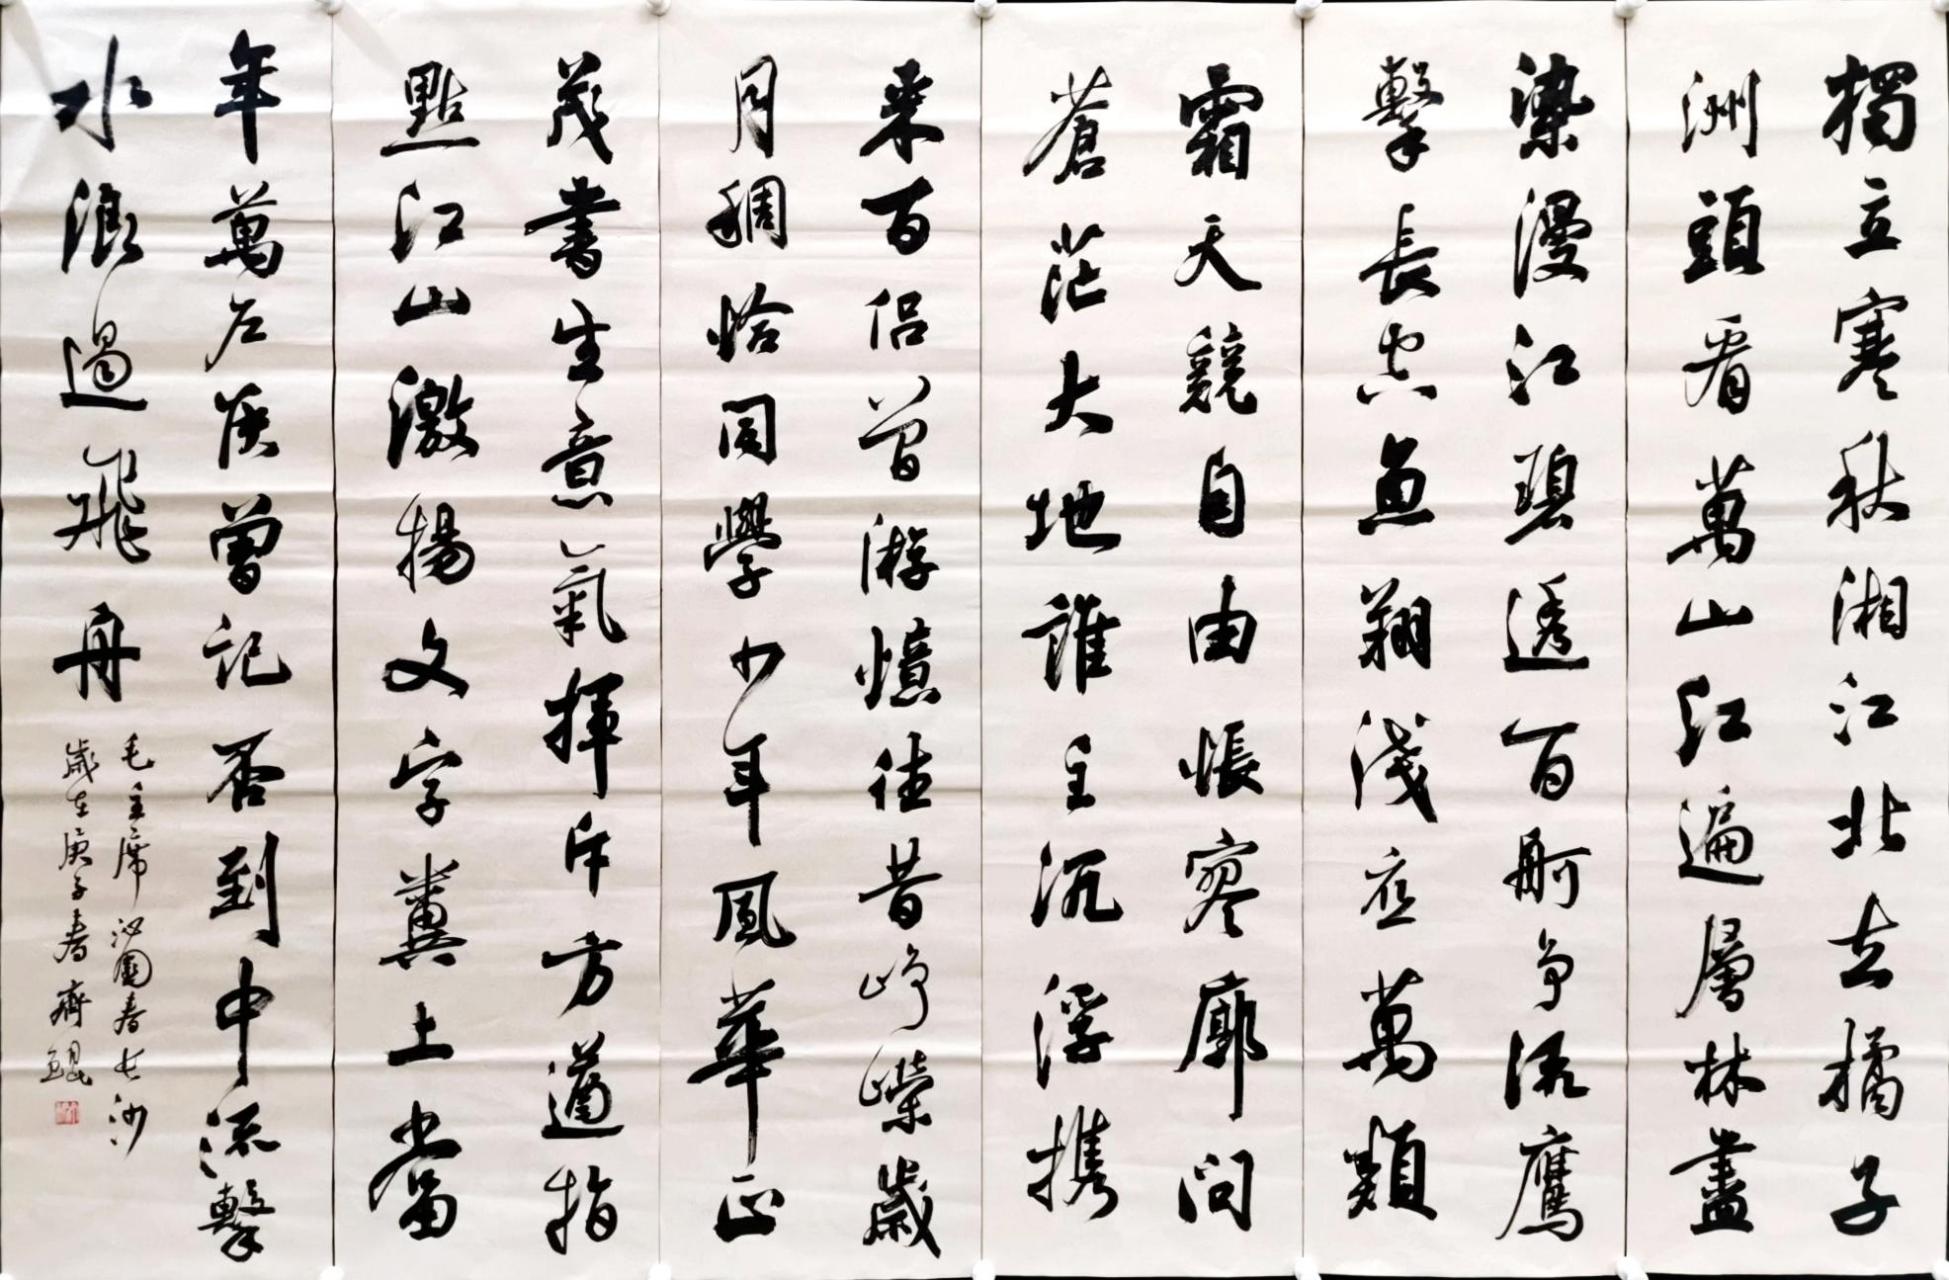 獨立寒秋湘江北去橘子
洲頭看萬山紅遍層林盡
染漫江碧透百舸争流鷹
擊長空魚翔淺底萬類
霜天競自由悵寥廓問
蒼茫大地誰主沉浮携
來百侣曾游憶往昔崢嶸歲
月稠恰同學少年風華正
茂書生意氣揮斥方遒指
點江山激揚文字糞土當
年萬户侯曾記否到中流擊
水浪遏飛舟
毛主席沁園春长沙
歲在庚子春齊鯤